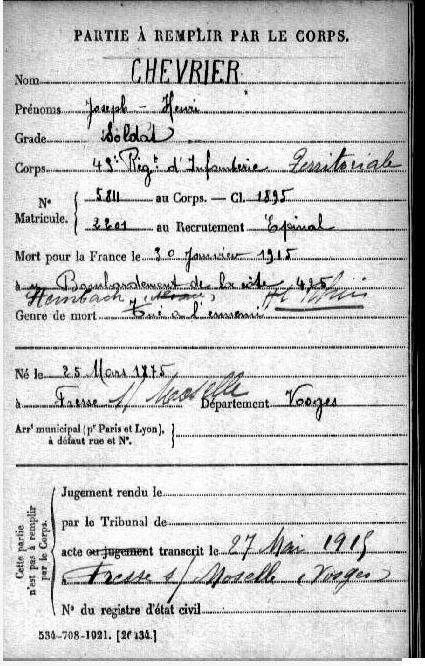 PARTIE À REMPLIR PAR LE CORPS.
Nom CHEVRIER
Prénoms Joseph - Henri
Grade Soldat
Corps 43e Régt d'Infanterie Territoriale
N° Matricule. { 5811 au Corps. — Cl. 1895
2201 au Recrutement Epinal
Mort pour la France le 30 Janvier 1915
à Bombardement de la côte 425
Steinbach (Alsace)
Genre de mort Tué à l'ennemi
Né le 25 Mars 1875
à Fresse s/ Moselle Département Vosges
Arrt municipal (pr Paris et Lyon), à défaut rue et N°. }
Cette partie n'est pas à remplir par le Corps.
Jugement rendu le
par le Tribunal de
acte ou jugement transcrit le 27 Mai 1915
à Fresse s/ Moselle (Vosges)
N° du registre d'état civil
534-708-1921. [26434.]